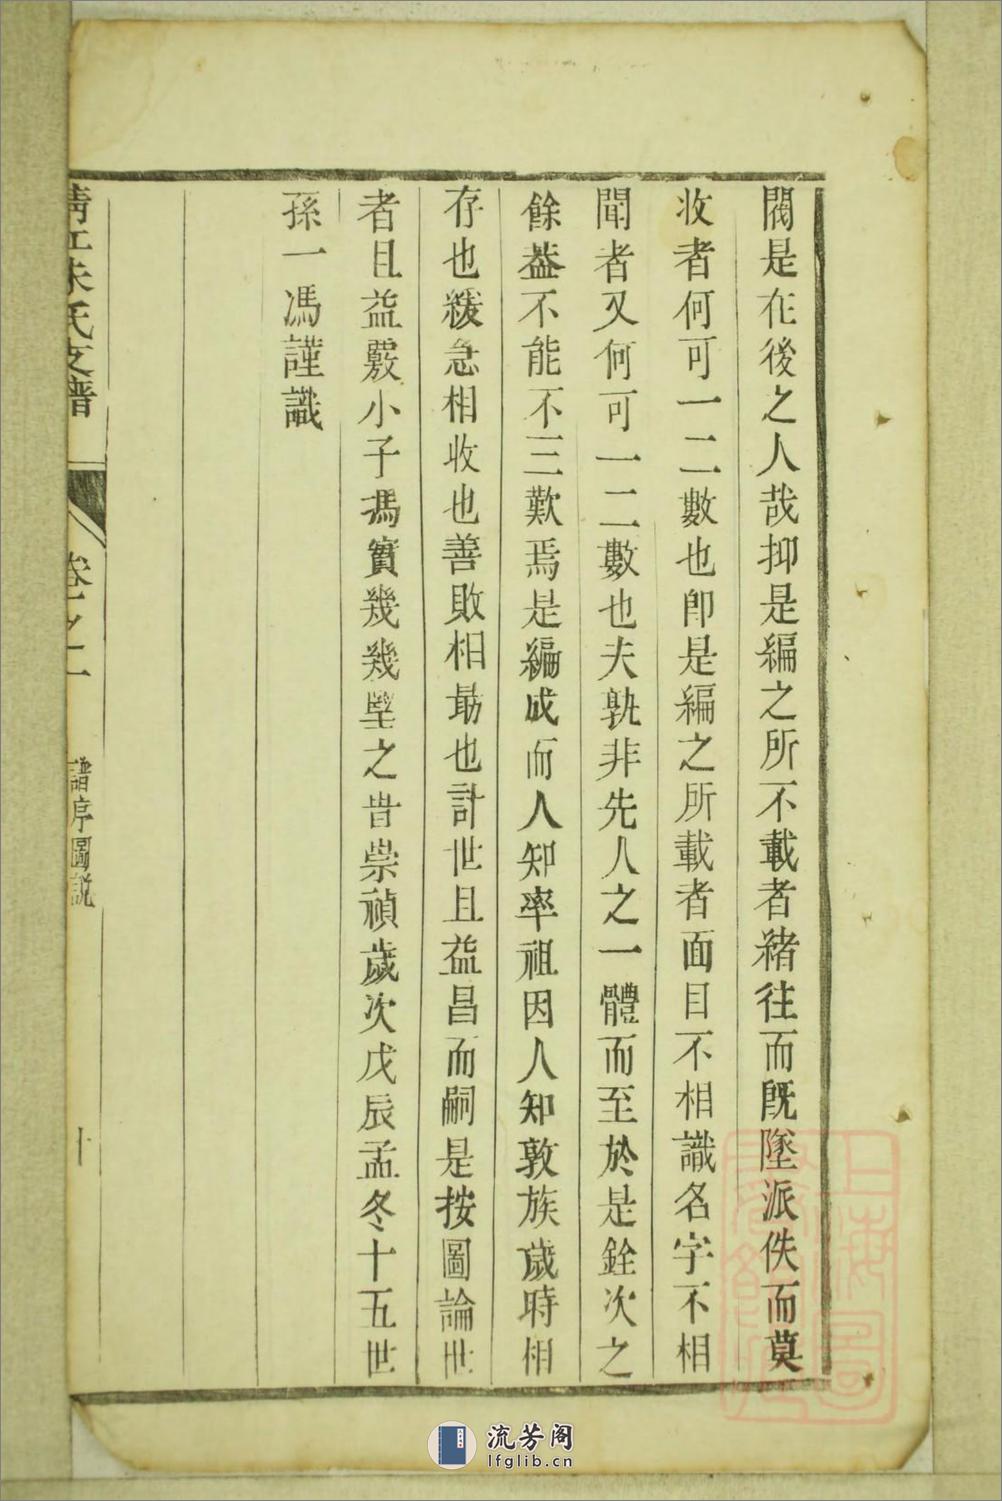 閥是在後之人哉抑是編之所不載者緒往而既墜派佚而莫
收者何可一二數也卽是編之所載者面目不相識名字不相
聞者又何可一二數也夫孰非先人之一體而至於是銓次之
餘葢不能不三歎焉是編成而人知率祖因人知敦族歲時相
存也緩急相收也善敗相勗也計世且益昌而嗣是按圖論世
者且益覈小子馮實幾幾望之旹崇禎歲次戊辰孟冬十五世
孫一馮謹識
朱氏支譜
卷之二
譜序圖説
十
上海圖
書館藏
流芳阁
lfglib.cn